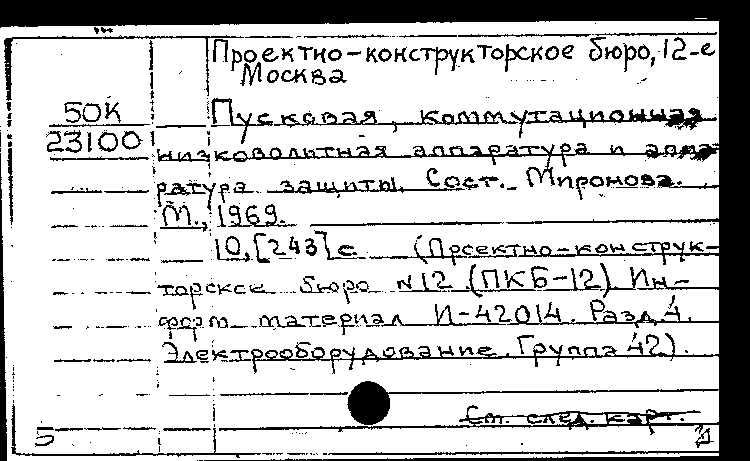 Проектно-конструкторское бюро, 12-е
Москва
50К
23100
Пусковая, коммутационная
низковольтная аппаратура и аппа-
ратура защиты. Сост. Миронова.
М., 1969.
10, [243] с. (Проектно-конструк-
торское бюро №12 (ПКБ-12). Ин-
форм. материал И-42014. Разд. 4.
Электрооборудование. Группа 42).
См. след. карт.
5